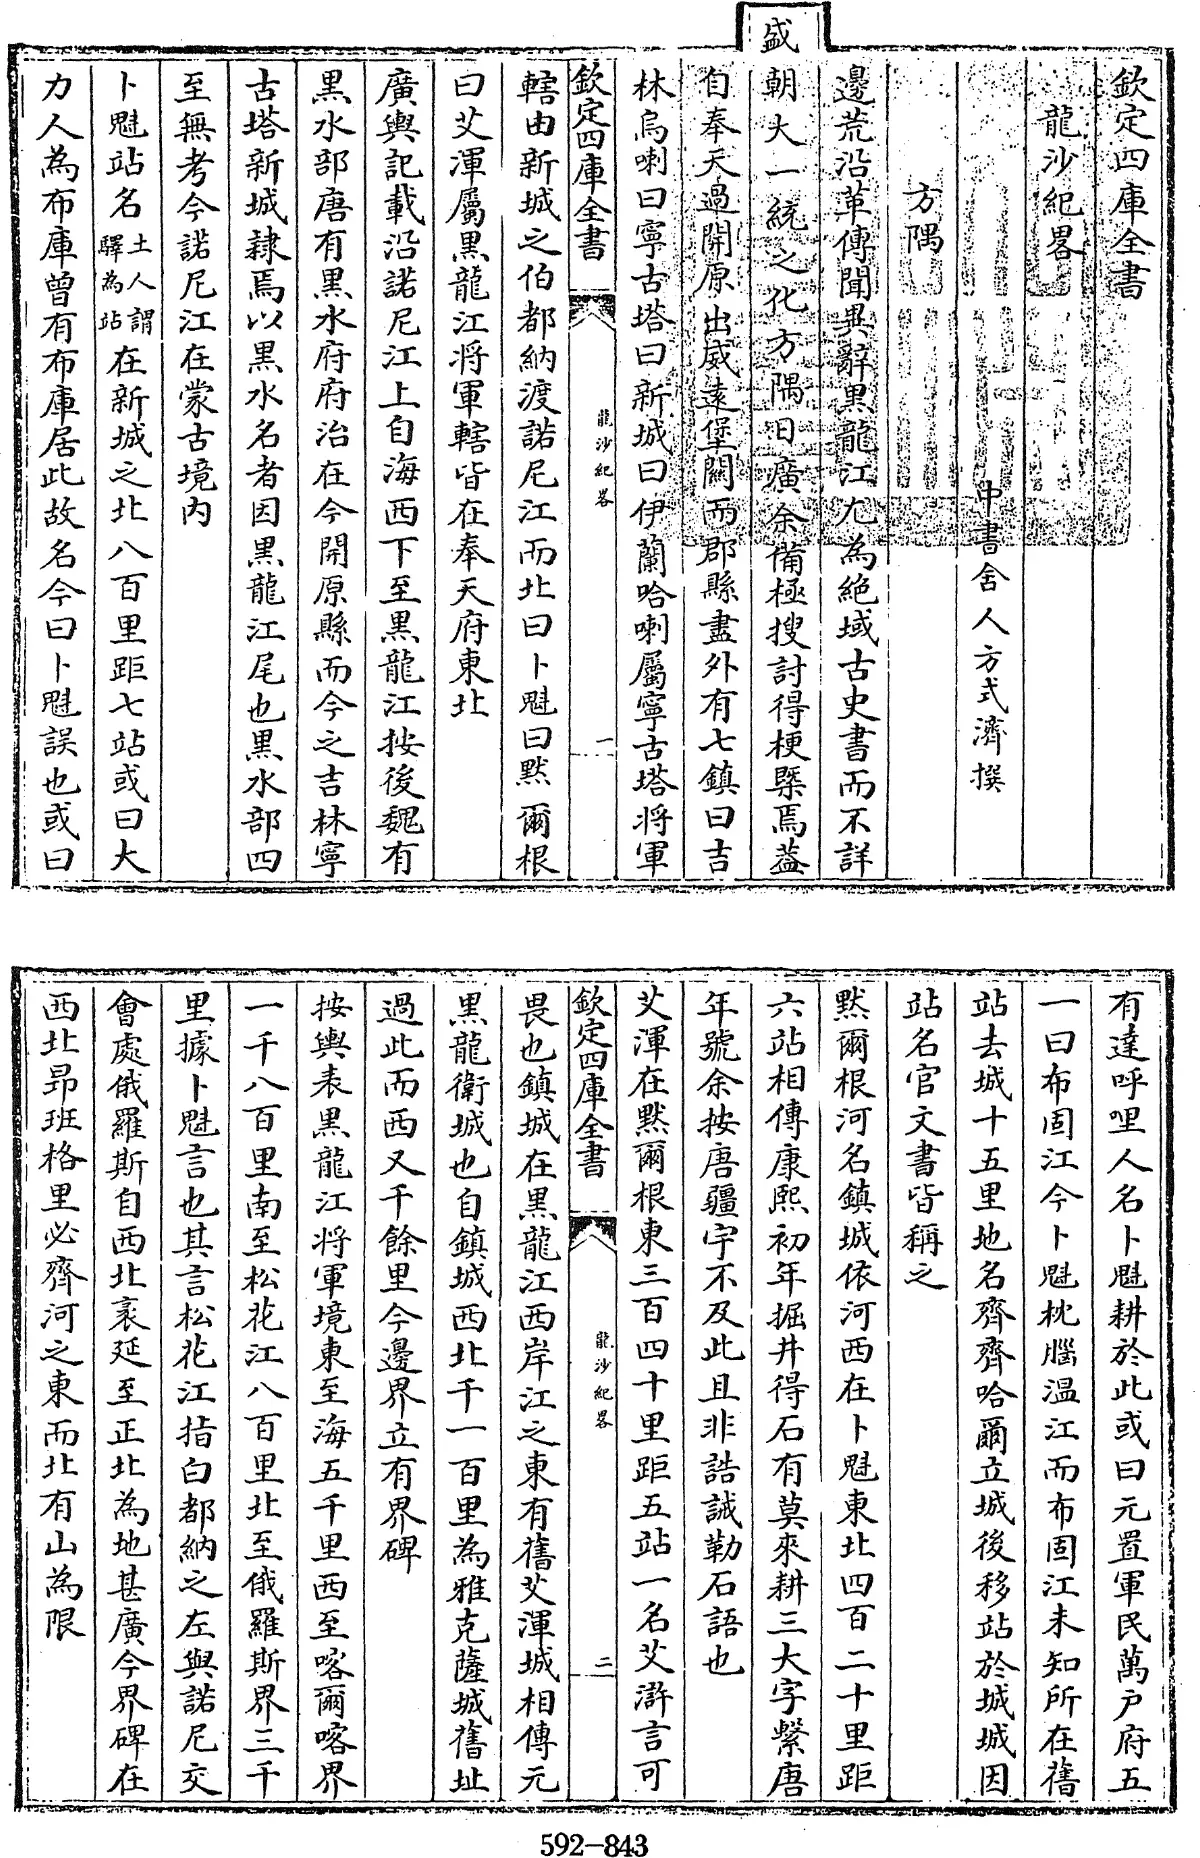 欽定四庫全書
龍沙紀畧
中書舍人方式濟撰
方隅
邊荒沿革傳聞異辭黑龍江尤為絕域古史書而不詳
盛
朝大一統之化方隅日廣余備極搜討得梗槩焉蓋
自奉天過開原出威遠堡關而郡縣盡外有七鎮曰吉
林烏喇曰寧古塔曰新城曰伊蘭哈喇屬寧古塔將軍
欽定四庫全書
龍沙紀畧
一
轄由新城之伯都納渡諾尼江而北曰卜魁曰黙爾根
曰艾渾屬黑龍江將軍轄皆在奉天府東北
廣輿記載沿諾尼江上自海西下至黑龍江按後魏有
黑水部唐有黑水府府治在今開原縣而今之吉林寧
古塔新城隸焉以黑水名者因黑龍江尾也黑水部四
至無考今諾尼江在蒙古境內
卜魁站名土人謂驛為站在新城之北八百里距七站或曰大
力人為布庫曾有布庫居此故名今曰卜魁誤也或曰
有達呼哩人名卜魁耕於此或曰元置軍民萬戶府五
一曰布固江今卜魁枕腦溫江而布固江未知所在舊
站去城十五里地名齊齊哈爾立城後移站於城城因
站名官文書皆稱之
黙爾根河名鎮城依河西在卜魁東北四百二十里距
六站相傳康熙初年掘井得石有莫來耕三大字繫唐
年號余按唐疆宇不及此且非誥誡勒石語也
艾渾在黙爾根東三百四十里距五站一名艾滸言可
欽定四庫全書
龍沙紀畧
二
畏也鎮城在黑龍江西岸江之東有舊艾渾城相傳元
黑龍衛城也自鎮城西北千一百里為雅克薩城舊址
過此而西又千餘里今邊界立有界碑
按輿表黑龍江將軍境東至海五千里西至喀爾喀界
一千八百里南至松花江八百里北至俄羅斯界三千
里據卜魁言也其言松花江指白都納之左與諾尼交
會處俄羅斯自西北袤延至正北為地甚廣今界碑在
西北昂班格里必齊河之東而北有山為限
592-843